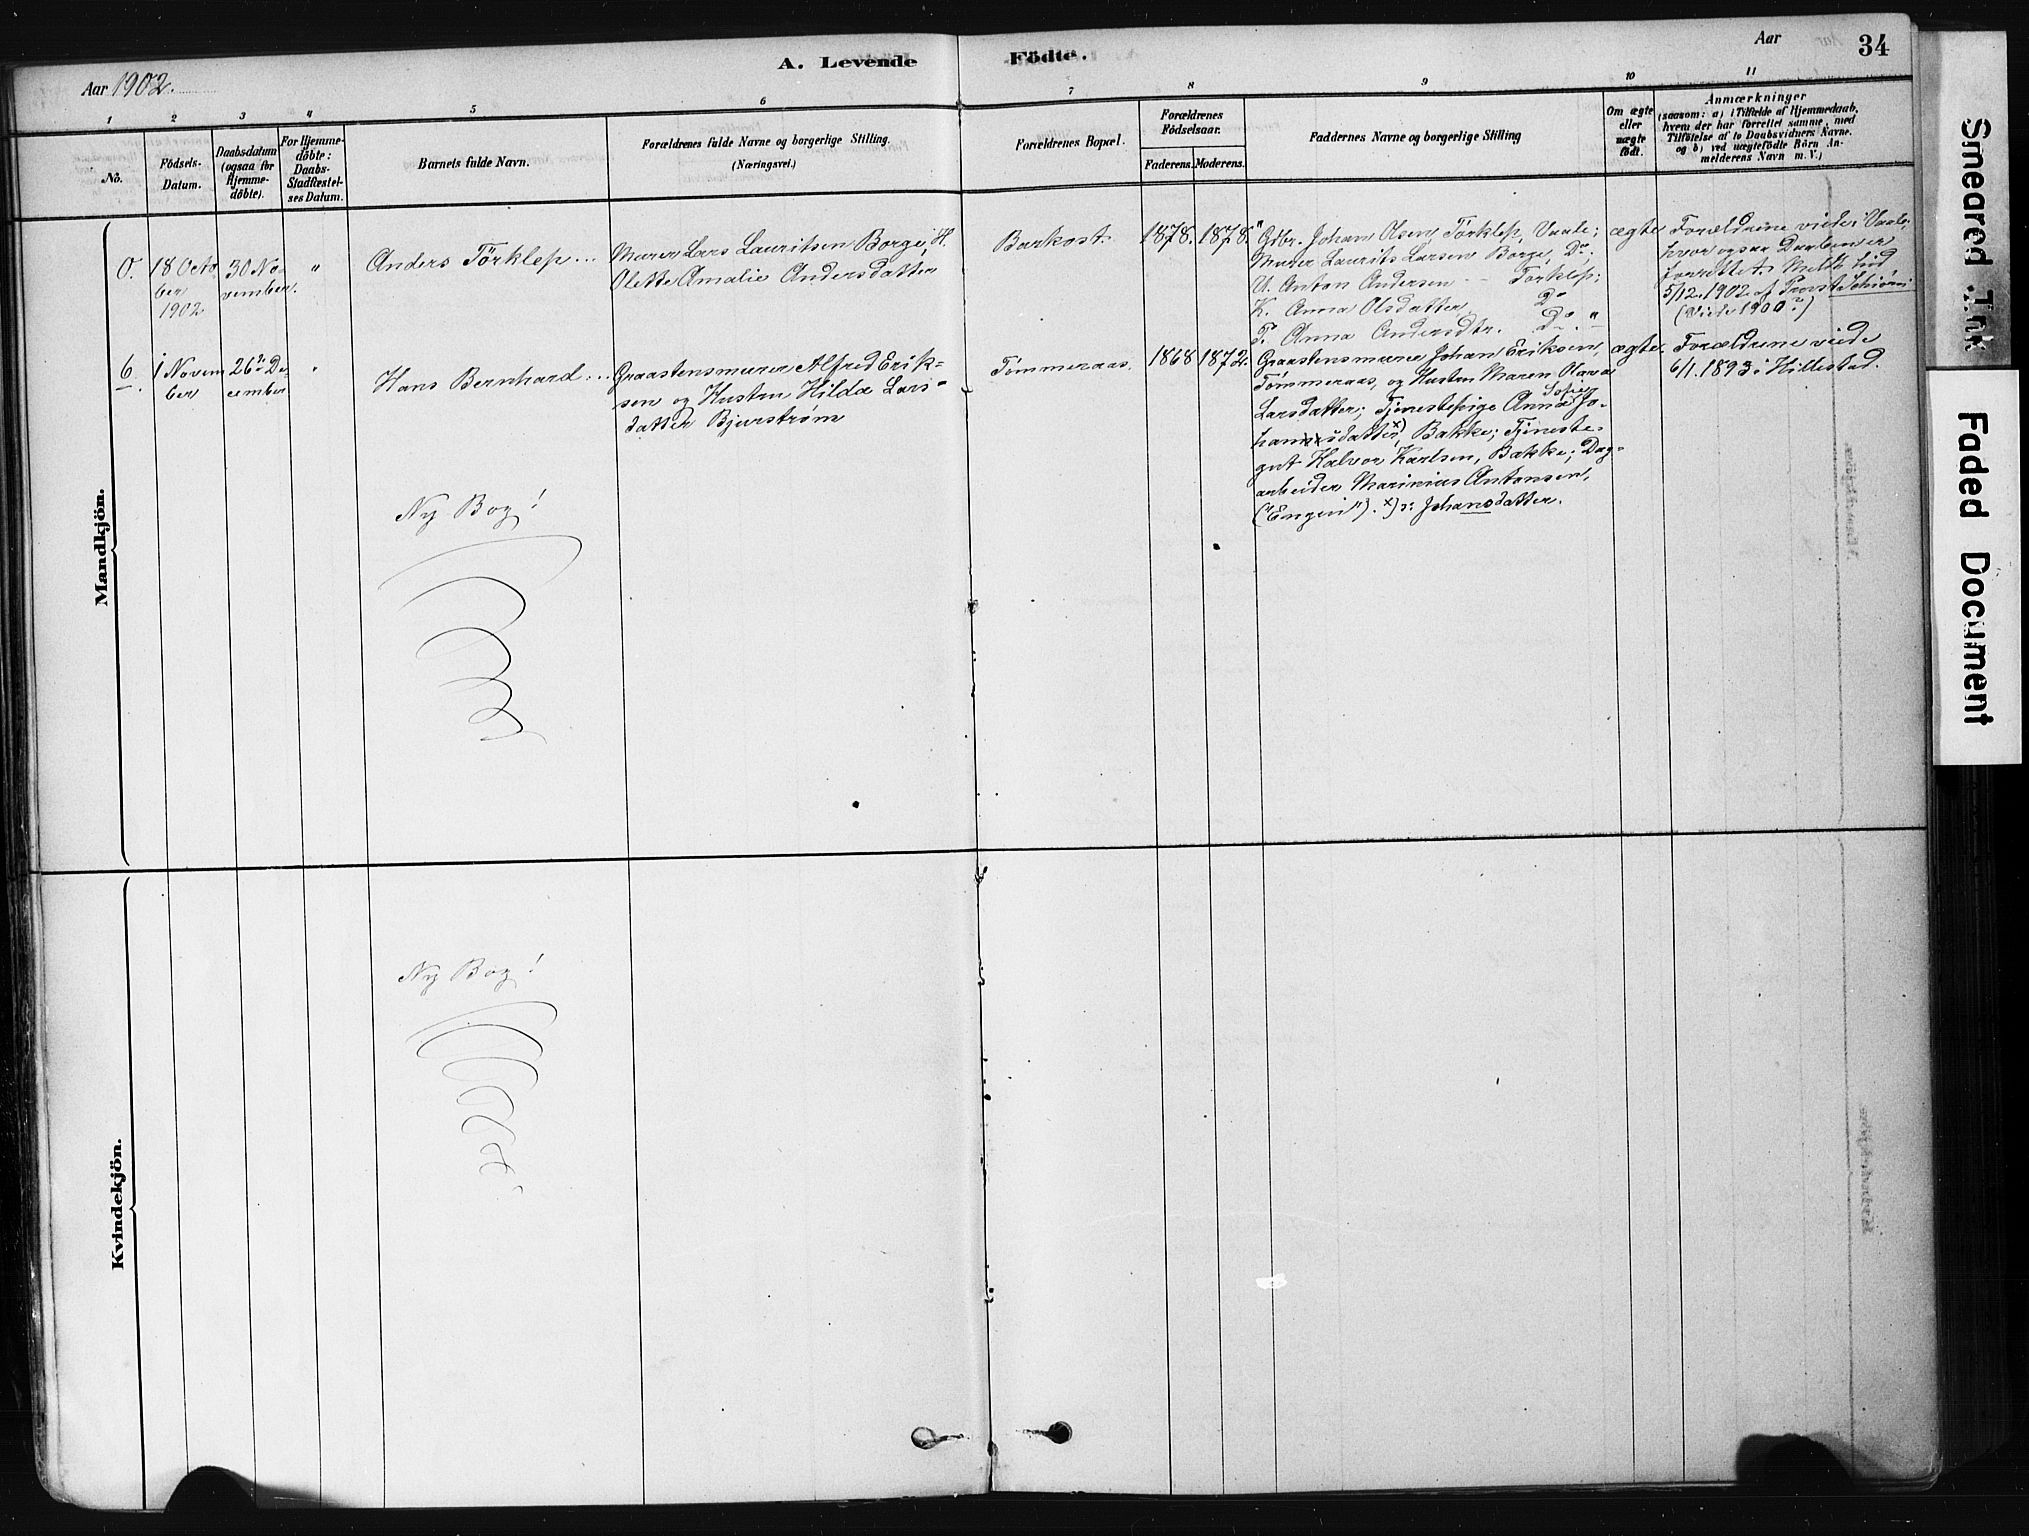 Aar 1902.
A. Levende Födte.
Aar
34
1
2
3
4
5
6
7
8
9
10
11
No.
Födsels-
Datum.
Daabsdatum
(ogsaa for
Hjemme-
döbte).
For Hjemme-
döbte:
Daabs-
Stadfæstel-
ses Datum.
Barnets fulde Navn.
Forældrenes fulde Navne og borgerlige Stilling.
(Næringsvei.)
Forældrenes Bopæl.
Forældrenes
Födselsaar.
Faderens.
Moderens.
Faddernes Navne og borgerlige Stilling
Om ægte
eller
uægte
födt.
Anmærkninger
(saasom: a) i Tilfælde af Hjemmedaab,
hvem der har forrettet samme, med
Tilföielse af to Daabsvidners Navne.
og b) ved uægtefödte Börn An-
melderens Navn m. V.)
Mandkjön.
0.
18 Octo
ber
1902
30 No-
vember.
"
Anders Törklep...
Murer Lars Lauritsen Borge, H.
Olette Amalie Andersdatter
Barkost.
1878.
1878.
Gdbr. Johan Olsen Törklep, Vaale;
Murer Laurits Larsen Borge, Do.
U. Anton Andersen -- Törklep;
K. Anna Olsdatter, Do
P. Anna Andersdtr. Do. "
ægte
Forældrene viede i Vaale,
hvor ogsaa Daaben er
forrettet. Meldt hid
5/12. 1902 af Provst Schiörn
(Viede 1900?)
6.
1 Novem
ber
26de De-
cember
"
Hans Bernhard...
Graastensmurer Alfred Erik-
sen og Hustru Hilda Lars-
datter Bjurström
Tömmeraas.
1868
1872.
Graastensmurer Johan Eriksen,
Tömmeraas, og Hustru Maren Olava
Larsdatter; Tjenestepige Anna Sofie Jo-
hannsdatter x), Bakke; Tjeneste-
gut Halvor Karlsen, Bakke; Dag-
arbeider Marinius Antonsen,
("Engen"). x) ɔ: Johansdatter.
ægte.
Forældrene viede
6/1. 1893 i Hillestad.
Ny Bog!
Kvindekjön.
Ny Bog!
Smeared Ink
Faded Document